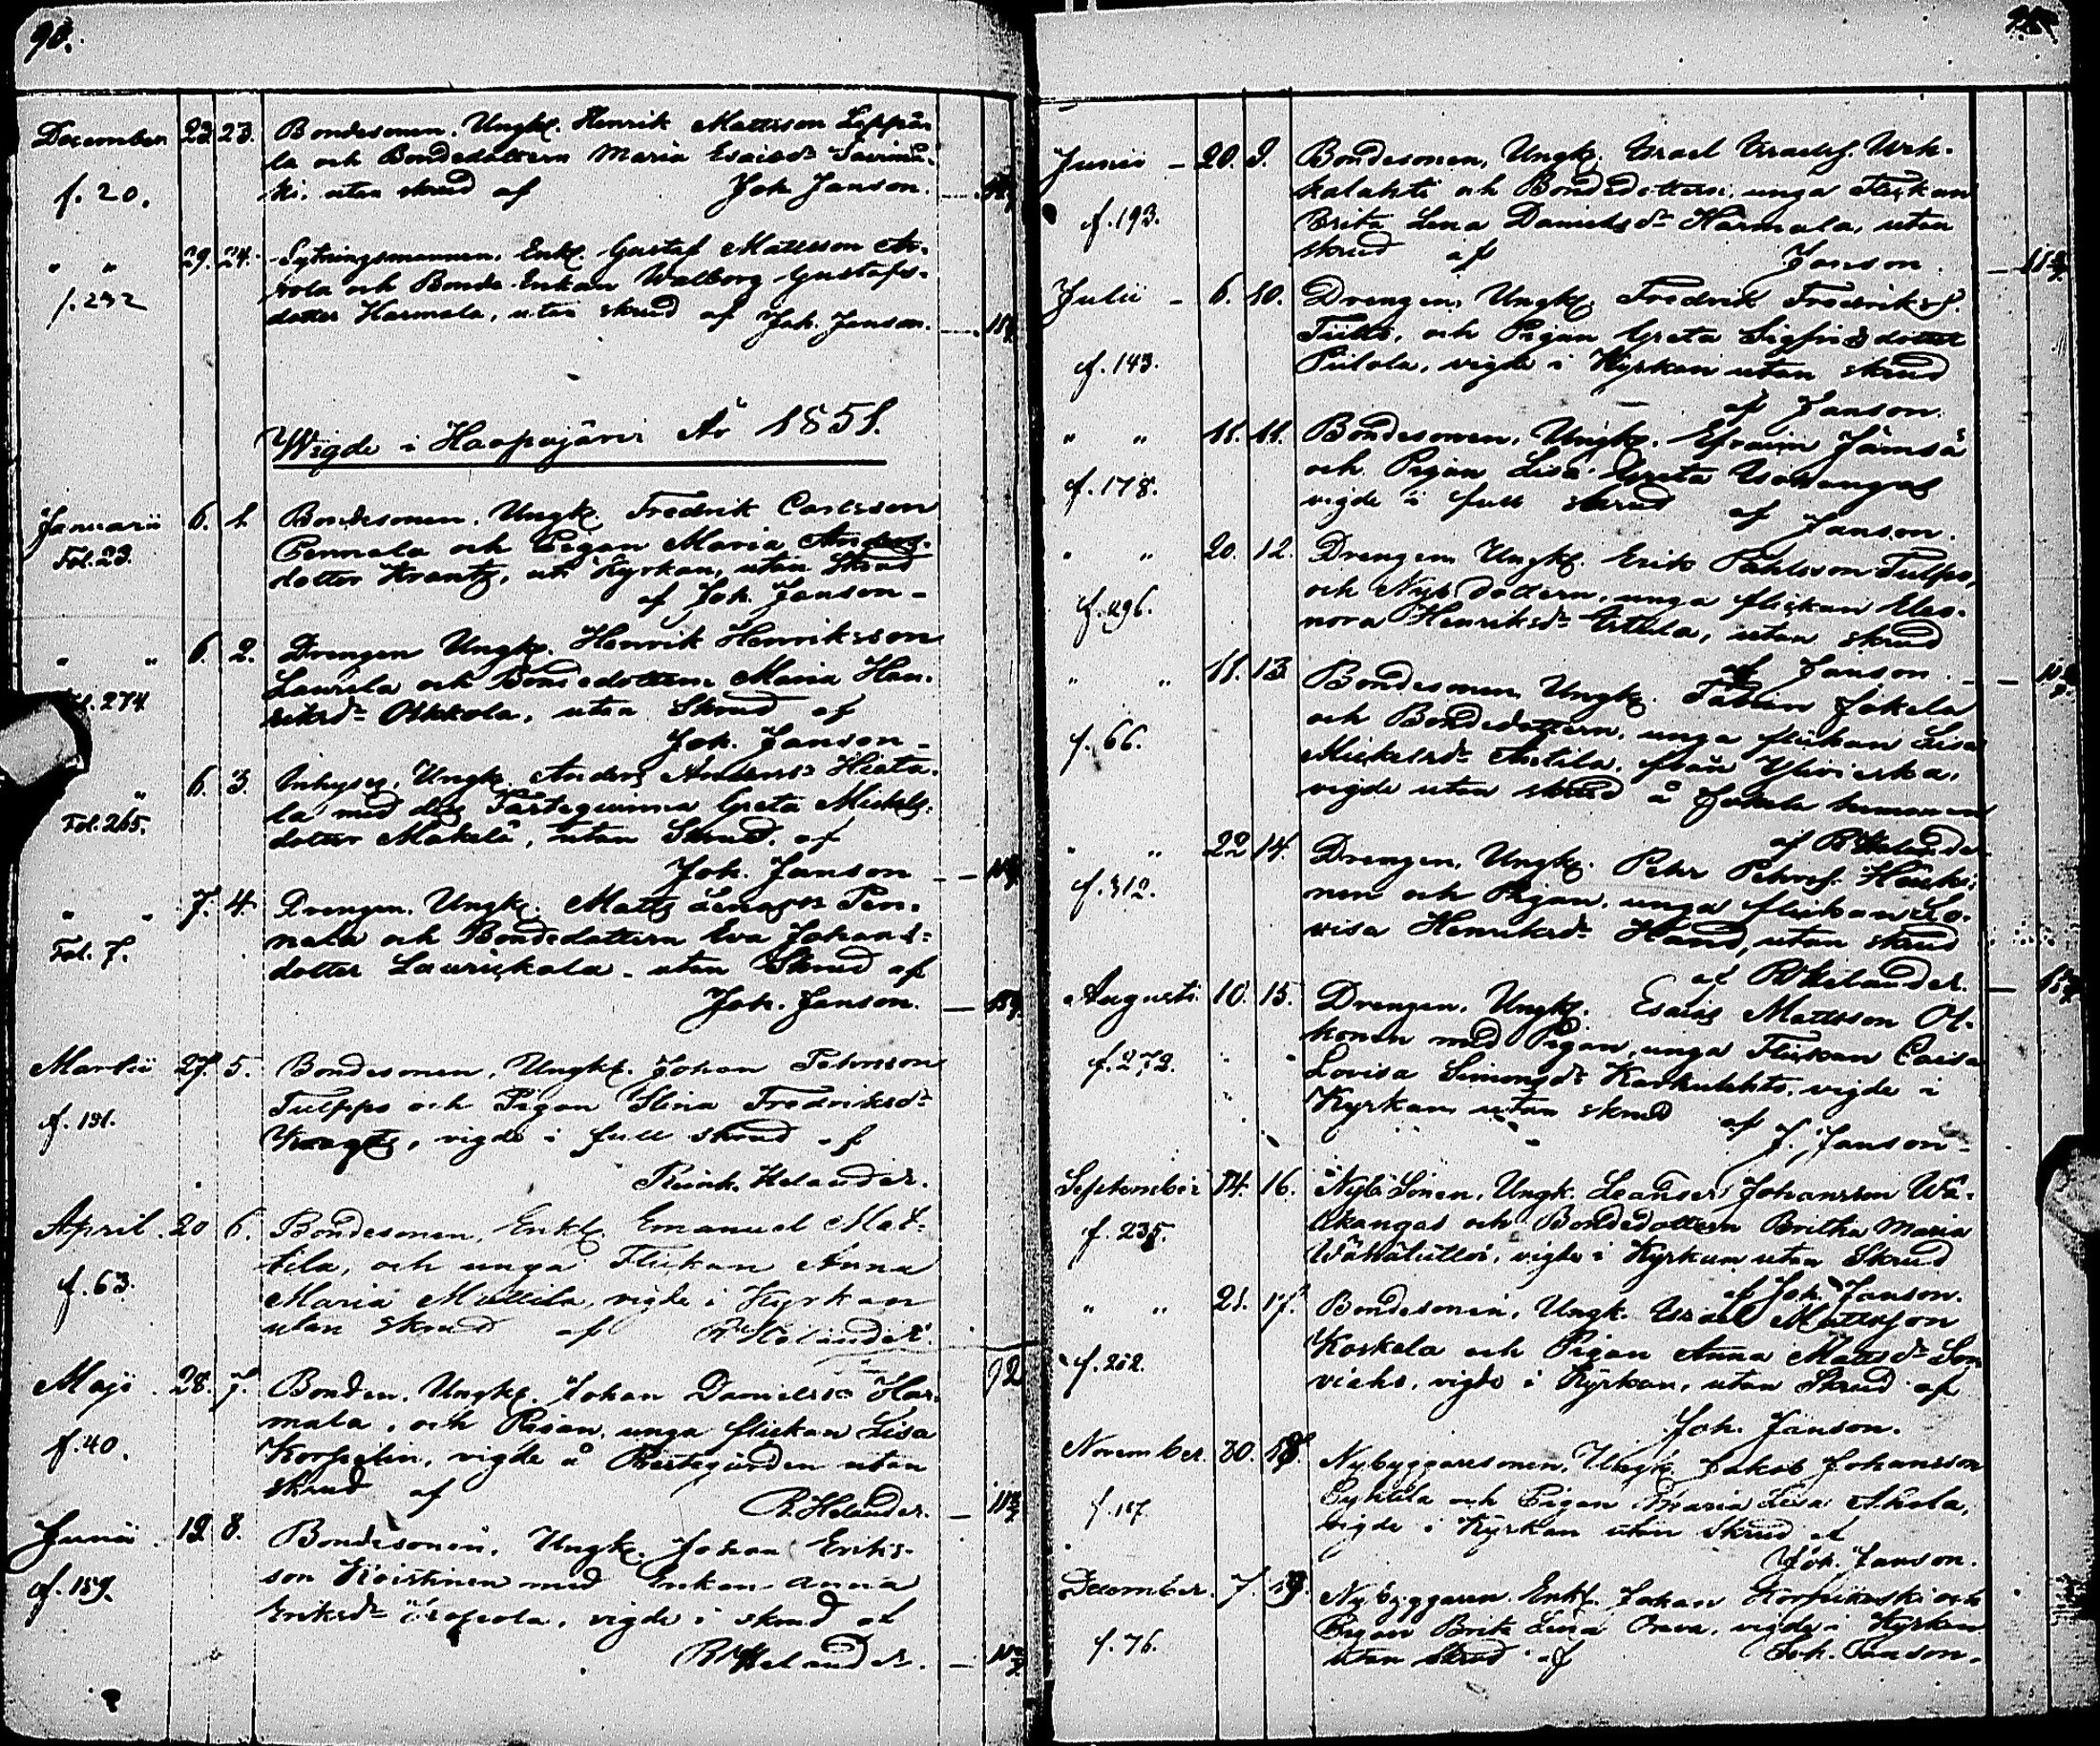 90.
December 23. 23. Bondesonen, Ungk. Henrik Mattsson Leppä-
la och Bondedottern Maria Esaisdr Savimä-
f. 20. ki, utan skrud af Joh. Janson.
" " 29. 24. Sytningsmannen, Enkl. Gustaf Mattsson
f. 232 och Bonde Enkan Walborg Gustafs-
dotter Harmala, utan skrud af Joh. Janson.
Wigde i Haapajärvi År 1851.
Januarii 6. 1. Bondesonen, Ungk. Fredrik Carlsson
Fol. 23. Pennala och Pigan Maria Anders-
dotter Krantz, uti Kyrkan, utan Skrud
af Joh. Janson
" " 6. 2. Drengen Ungk. Henrik Henriksson
Laurila och Bondedottern Maria Hen-
274 riksdr Okkola, utan Skrud af
Joh. Janson
" 6. 3. Inhyses, Ungk. Anders Anderss. Hieta-
Fol. 265. la med dess Fästeqvinna Greta Mickels-
dotter Mäkelä, utan Skrud, af
Joh. Janson
" " 7. 4. Drengen, Ungk. Matts Pen-
Fol. 7. nala och Bondedottern Eva Johans-
dotter Laurickala, utan Skrud af
Joh. Janson.
Martii 27. 5. Bondesonen, Ungk. Johan Petersson
Tulppo och Pigan Stina Fredriksdr
f. 131. vigde i full skrud af
Reinh. Helander.
April. 20 6. Bondesonen, Enkl. Emanuel Mat-
tila, och unga Flickan Anna
f. 63. Maria Mattila, vigde i Kyrkan
utan skrud af R Helander.
Maji. 28. 7. Bonden, Ungk. Johan Danielss. Har-
mala, och Pigan, unga flickan Lisa
f. 40. Korpelin, vigde å Prestegården utan
skrud af R. Helander.
Junii. 12 8. Bondesonen, Ungk. Johan Eriks-
son Köistinen med Enkan Anna
f. 159. Eriksdr vigde i skrud af
R Helander.
Junii 20. 9. Bondesonen, Ungk. Israel Israelss.
och Bondedottern, unga Flickan
f. 193. Brita Lena Danielsdr Härmala, utan
skrud af Janson.
Julii 6. 10. Drengen, Ungk. Fredrik Fredrikss.
och Pigan Greta Sigfridsdotter
f. 143. Piilola, vigde i Kyrkan utan skrud
af Janson.
" " 11. 11. Bondesonen, Ungk. Efraim Jämsä
och Pigan Lisa Greta Isokangas
f. 178. vigde i full skrud af Janson.
" " 20. 12. Drengen Ungk. Erik Påhlsson Tulppo,
och Nyb. dottern, unga flickan Eleo-
f. 296. nora Henriksdr utan skrud
af Janson.
" " 11. 13. Bondesonen Ungk. Fabian Jokela
och Bondedottern, unga flickan Lisa
f. 66. Mickelsdr Anttila, från Ylivieska,
vigde utan skrud å Jokela hemman
af R Helander
" " 22 14. Drengen, Ungk. Petter Petterss.
f. 312. nen och Pigan, unga flickan Lo-
visa Henriksdr Hand, utan skrud
af R Helander.
Augusti 10. 15. Drengen, Ungk. Esaias Mattsson Ol-
konen med Pigan, unga Flickan Caisa
f. 272. Lovisa Simonsdr Karhulehto, vigde i
Kyrkan utan skrud af J. Janson
September 14. 16. Nyb. Sonen, Ungk. Leander Johansson Wä-
likangas och Bondedottern Britha Maria
f. 235. vigde i Kyrkan utan Skrud
af Joh. Janson.
" " 21. 17. Bondesonen, Ungk. Israel Mattsson
Koskela och Pigan Anna Mattsdr
f. 202. vigde i Kyrkan, utan Skrud af
Joh. Janson.
November. 30. 18. Nybyggaresonen, Ungk. Jakob Johansson
Pyhtilä och Pigan Maria Lisa Ahola,
f. 117. vigde i Kyrkan utan Skrud af
Joh. Janson.
December. 7. 19. Nybyggaren, Enkl. Johan Korpikoski och
Pigan Brita Lisa Orava, vigde i Kyrkan
f. 76. utan skrud af Joh. Janson.